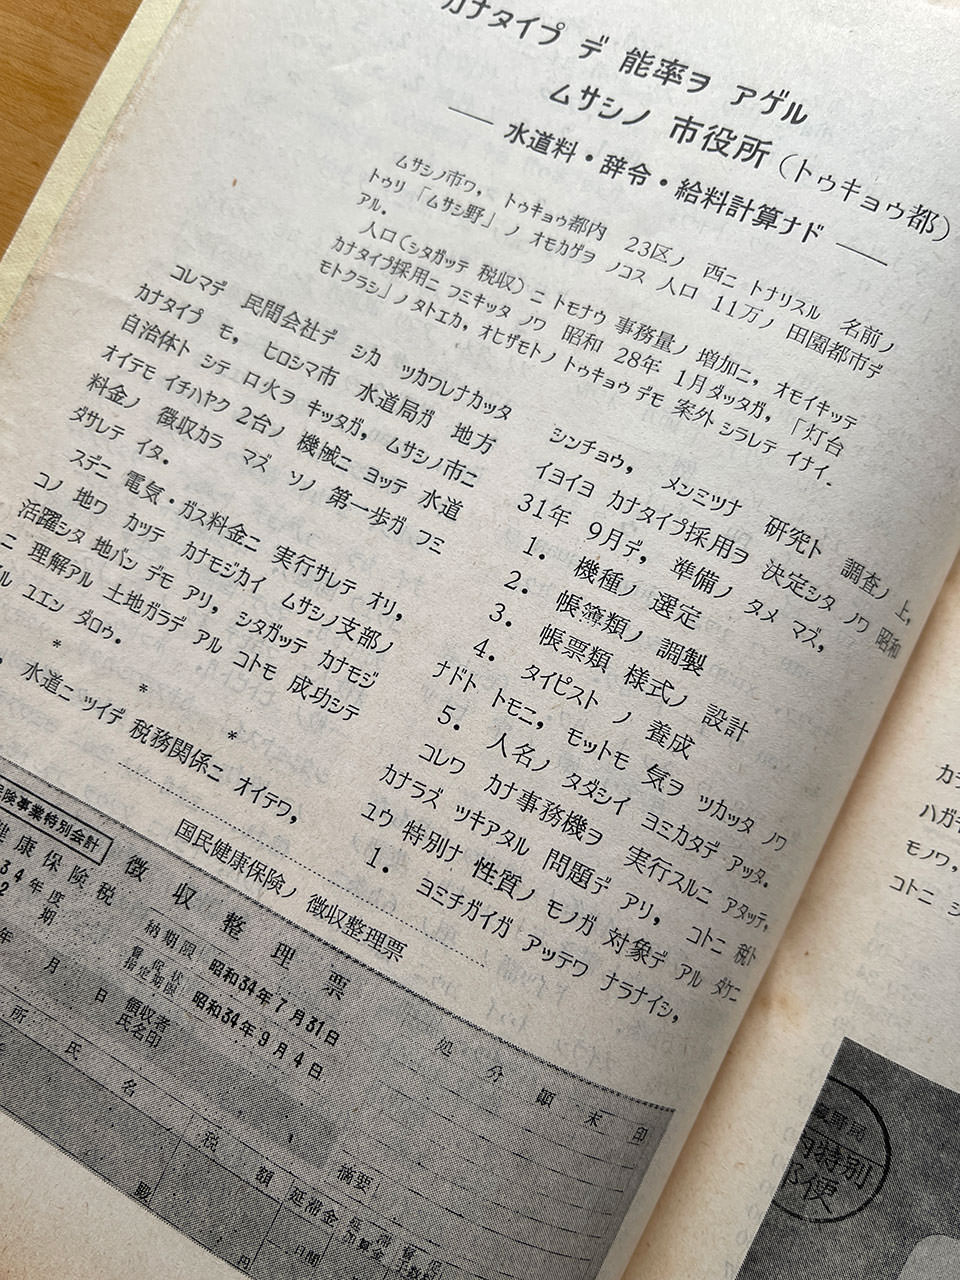 カナタイプ デ 能率ヲ アゲル
ムサシノ 市役所 (トゥキョウ都)
― 水道料・辞令・給料計算ナド ―
ムサシノ市ワ, トゥキョウ都内 23区ノ 西ニ トナリスル 名前ノ
トゥリ 「ムサシ野」ノ オモカゲヲ ノコス 人口 11万ノ 田園都市デ
アル.
人口(シタガッテ 税収)ニ トモナウ 事務量ノ 増加ニ, オモイキッテ
カナタイプ採用ニ フミキッタ ノワ 昭和 28年 1月ダッタガ, 「灯台
モトクラシ」ノ タトエカ, オヒザモトノ トゥキョウ デモ 案外 シラレテ イナイ.
コレマデ 民間会社デ シカ ツカワレナカッタ
カナタイプ モ, ヒロシマ市 水道局ガ 地方
自治体ト シテ 口火ヲ キッタガ, ムサシノ市ニ
オイテモ イチハヤク 2台ノ 機械ニ ヨッテ 水道
料金ノ 徴収カラ マズ ソノ 第一歩ガ フミ
ダサレテ イタ.
スデニ 電気・ガス料金ニ 実行サレテ オリ,
コノ 地ワ カッテ カナモジカイ ムサシノ支部ノ
活躍シタ 地バン デモ アリ, シタガッテ カナモジ
ニ 理解アル 土地ガラデ アル コトモ 成功シテ
ル ユエン ダロウ.
* * *
, 水道ニ ツイデ 税務関係ニ オイテワ,
国民健康保険ノ 徴収整理票
シンチョウ, メンミツナ 研究ト 調査ノ 上,
イヨイヨ カナタイプ採用ヲ 決定シタ ノワ 昭和
31年 9月デ, 準備ノ タメ マズ,
1. 機種ノ 選定
2. 帳簿類ノ 調製
3. 帳票類 様式ノ 設計
4. タイピスト ノ 養成
ナドト トモニ, モットモ 気ヲ ツカッタ ノワ
5. 人名ノ タダシイ ヨミカタデ アッタ.
コレワ カナ事務機ヲ 実行スルニ アタッテ,
カナラズ ツキアタル 問題デ アリ, コトニ 税ト
ユウ 特別ナ 性質ノ モノガ 対象デ アル ダケニ
1. ヨミチガイガ アッテワ ナラナイシ,
険事業特別会計
健康保険税 徴収整理票
34年度
2 期
納期限 昭和34年7月31日
督促状指定期限 昭和34年9月4日
年 月 日
領収者氏名印
処分顛末 印
所 氏名
税額
摘要
延滞金
日間
円
カラ
ハガキ
モノワ,
コトニ シ
特別
郵便